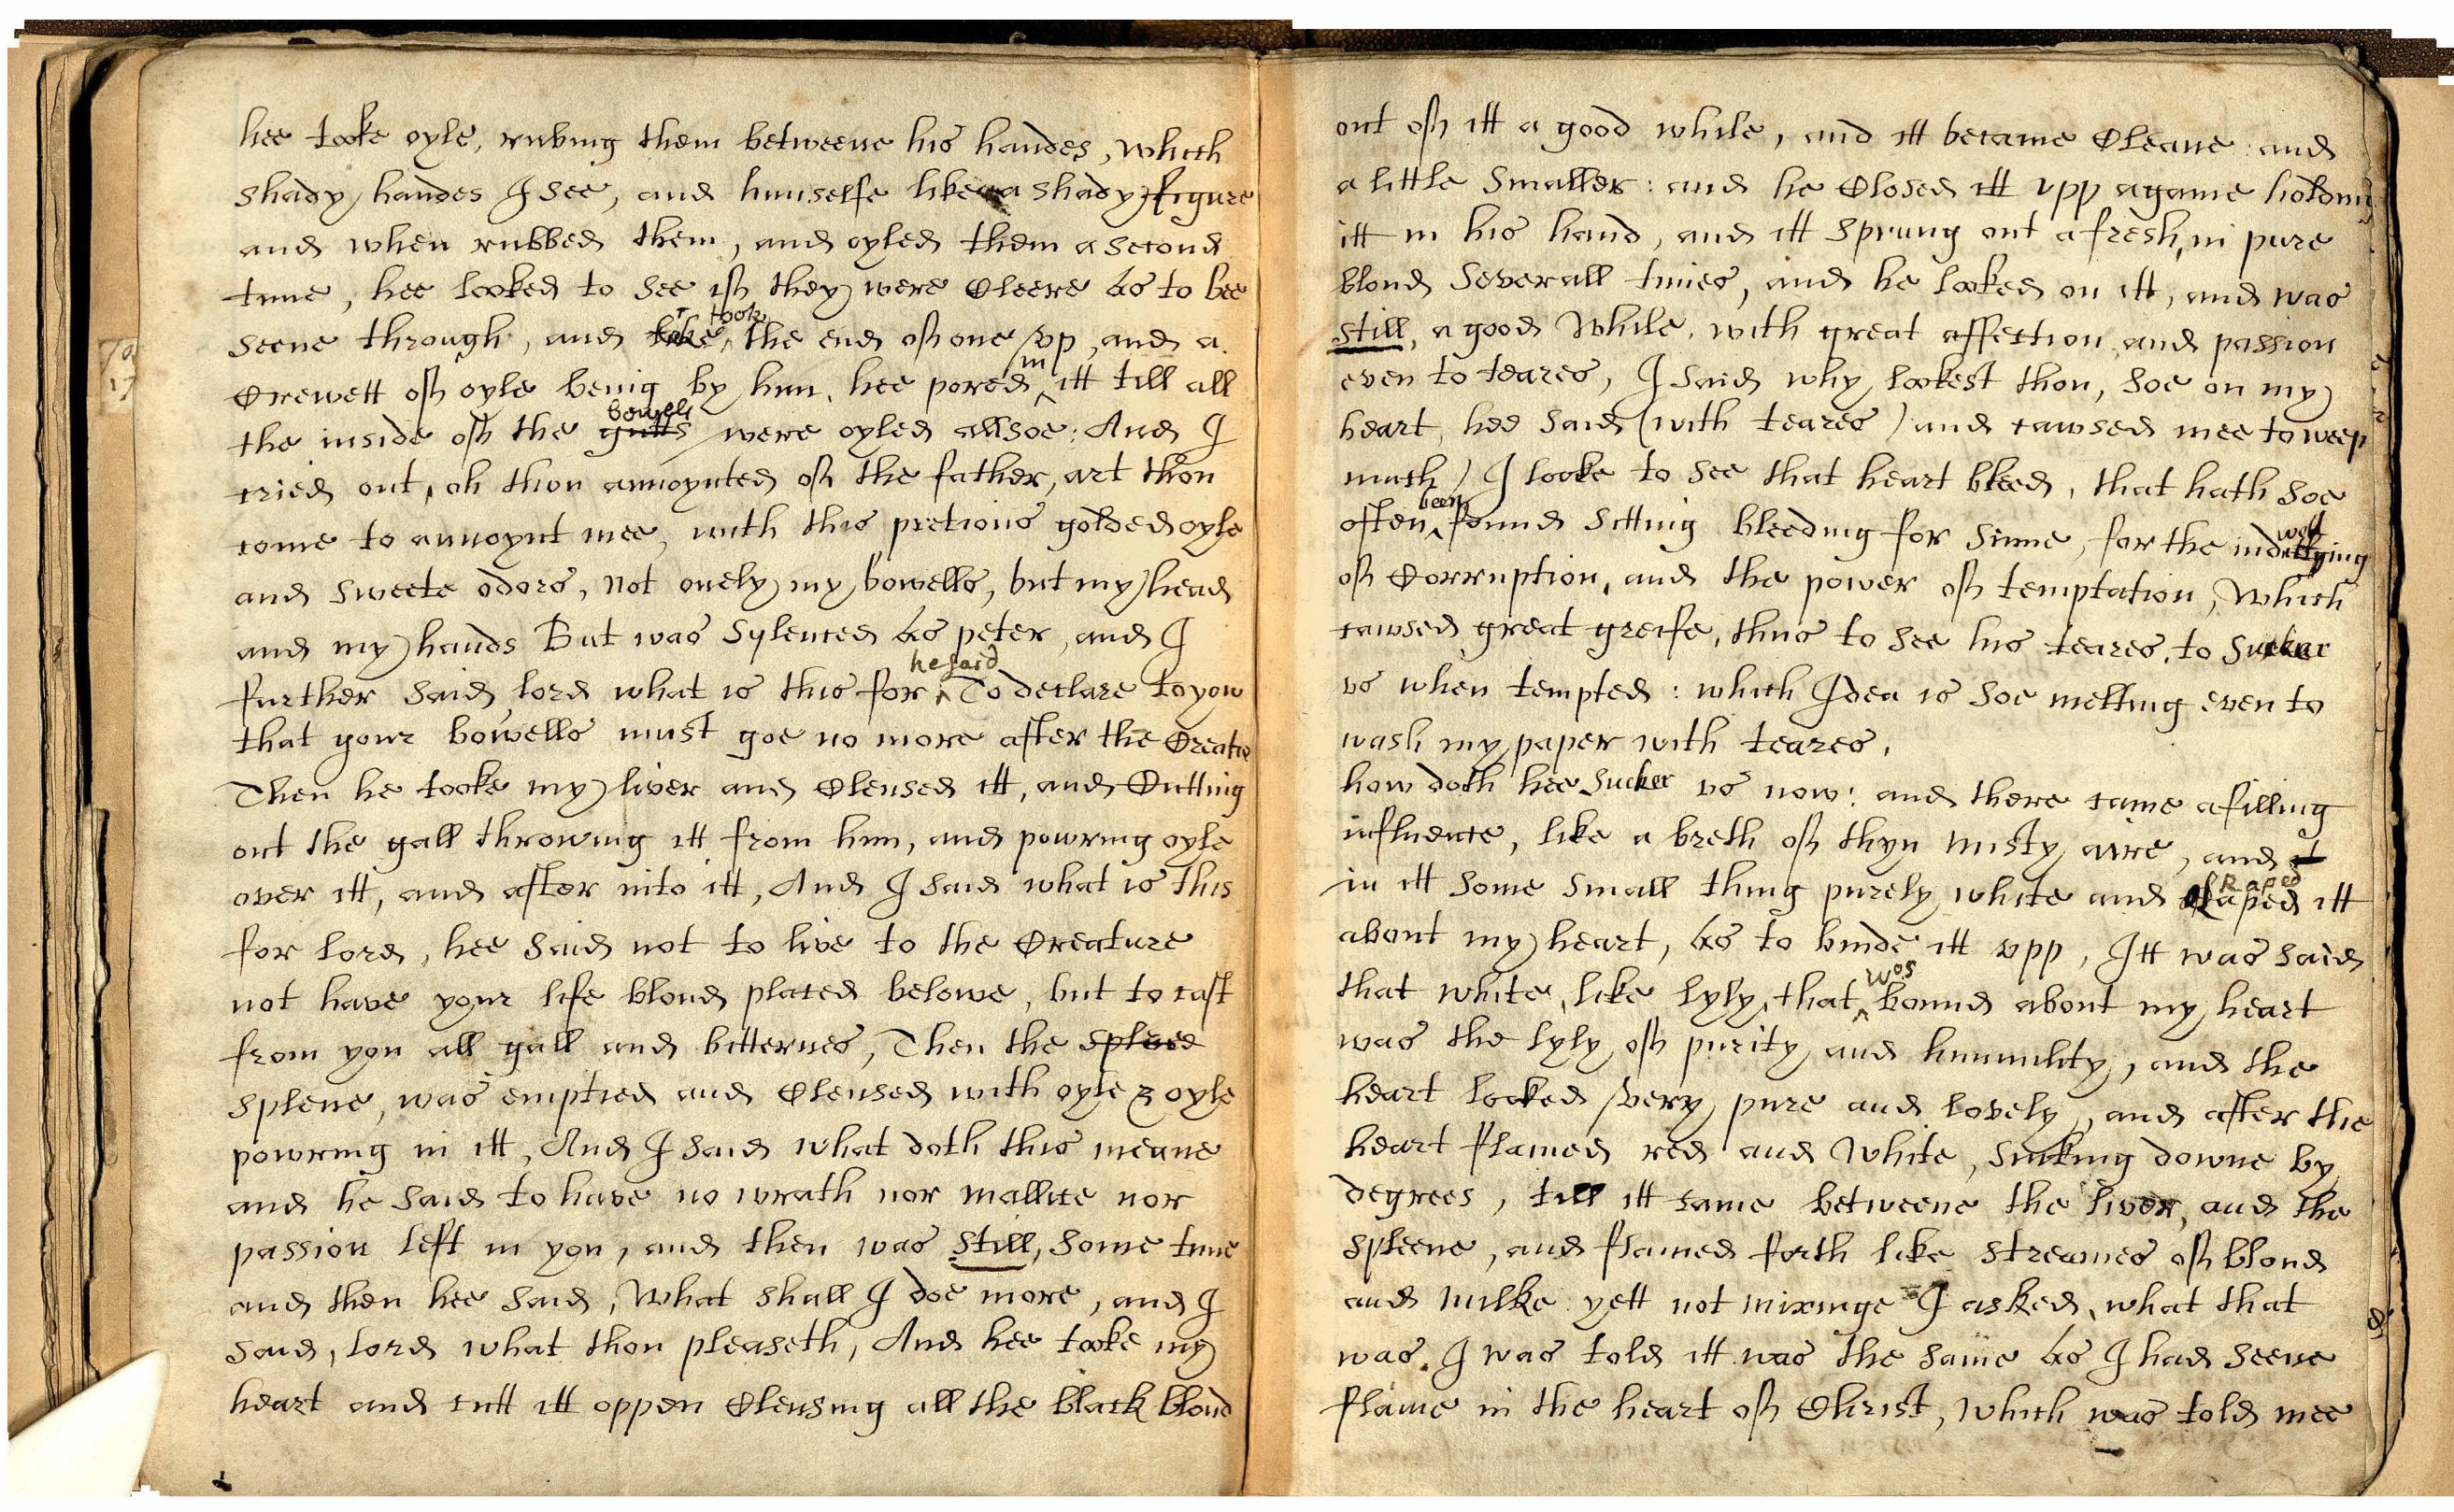 hee tooke oyle, rubing them betweene his handes, which
shady handes I see, and himselfe like a shady figure
and when rubbed them, and oyled them a second
time, hee looked to see if they were Cleere As to bee
seene through, and take took the end of one vp, and a
Crewett of oyle being by him, hee pored in itt till all
the inside of the gutts bowels were oyled allsoe: And I
cried out, oh thou annoynted of the father, art thou
come to annoynt mee, with this pretious golded oyle
and sweete odors, not onely my bowells, but my head
and my hands But was Sylenced As peter, and I
further said lord what is this for he said To declare to you
that your bowells must goe no more after the Creatre
Then he tooke my liver and Clensed itt, and Cutting
out the gall throwing itt from him, and powring oyle
over itt, and after into itt, And I said what is this
for lord, hee said not to live to the Creature
not have your life bloud placed belowe, but to cast
from you all gall and bitternes, Then the spleed
Splene, was emptied and Clensed with oyle & oyle
powring in itt, And I said what doth this meane
and he said to have no wrath nor mallice nor
passion left in you, and then was still, some time
and then hee said, What shall I doe more, and I
said, lord what thou pleaseth, And hee tooke my
heart and cutt itt oppen Clensing all the black bloud
out of itt a good while, and itt became Cleane and
a little smaller: and he Closed itt vpp againe holding
itt in his hand, and itt sprung out afresh, in pure
bloud severall times, and he looked on itt, and was
still, a good while, with great affection and passion
even to teares, I said why lookest thou, soe on my
heart, hee said (with teares) and cawsed mee to weep
much) I looke to see that heart bleed, that hath soe
often been found sitting bleeding for sinne, for the indwellying
of Corruption, and the power of temptation, which
cawsed great greife, thus to see his teares, to Sucker
vs when tempted: which Idea is soe melting even to
wash my paper with teares,
how doth hee Sucker vs now: and there came a filling
influence, like a breth of thyn misty aire, and
in itt some small thing purely white and shaped itt
about my heart, As to binde itt vpp, Itt was said
that white, like lyly, that was bound about my heart
was the lyly of purity and hummility, and the
heart looked very pure and lovely, and after the
heart flamed red and white, sinking downe by
degrees, till itt came betweene the liver, and the
spleene, and flamed forth like streames of bloud
and milke yett not mixinge I asked, what that
was. I was told itt was the same As I had seene
flame in the heart of Christ, which was told mee